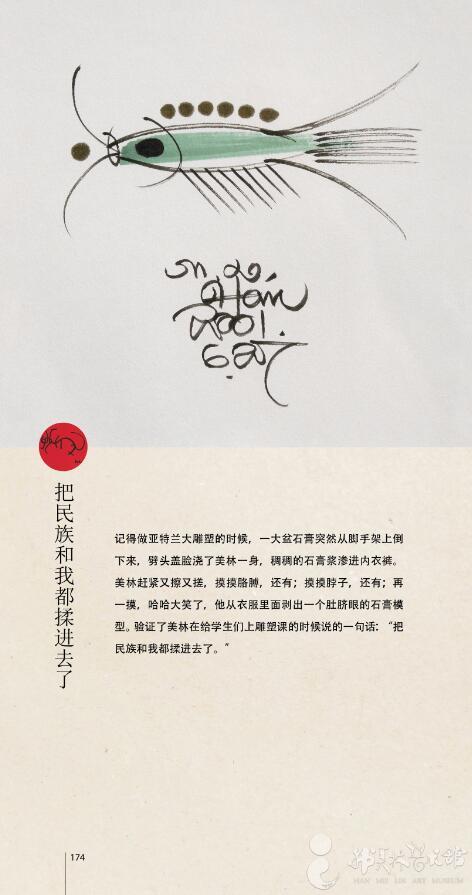 Han
2001.
把民族和我都揉进去了
记得做亚特兰大雕塑的时候，一大盆石膏突然从脚手架上倒
下来，劈头盖脸浇了美林一身，稠稠的石膏浆渗进内衣裤。
美林赶紧又擦又搓，摸摸胳膊，还有；摸摸脖子，还有；再
一摸，哈哈大笑了，他从衣服里面剥出一个肚脐眼的石膏模
型。验证了美林在给学生们上雕塑课的时候说的一句话：“把
民族和我都揉进去了。”
174
HAN MEI LIN ART MUSEUM